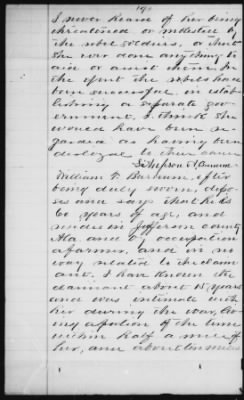 I never heard of her being
threatened or molested by
the rebel soldiers, or that
she ever done any thing to
aid or assist them. In
the event the rebels had
been successful in estab-
lishing a separate gov-
ernment, I think she
would have been re-
garded as having been
disloyal to their cause
Simpson
William F. Barham, after
being duly sworn, depo-
ses and says that he is
60 years of age, and
resides in Jefferson county
Ala and by occupation
a farmer, and in no
way related to the claim
ant. I have known the
claimant about 15 years
and was intimate with
her during the war, liv-
ing a portion of the time
within half a mile of
her, and about two miles